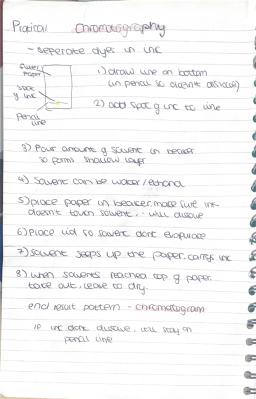 Pratical Chromatography
- Seperate dyes in ink
filter paper
spot of ink
pencil line
1) draw line on bottom
(in pencil so doesnt dissolve)
2) add spot of ink to line
3) Pour amount of solvent in beaker
so forms shallow layer
4) Solvent can be water/ethanol
5) place paper in beaker, make sure ink
doesn't touch solvent, - will disolve
6) Place lid so solvent dont evaporate
7) Solvent seeps up the paper, carrys ink
8) when solvents reached top of paper,
take out, leave to dry.
end result pattern - chromatogram
if ink dont disolve, will stay on
pencil line